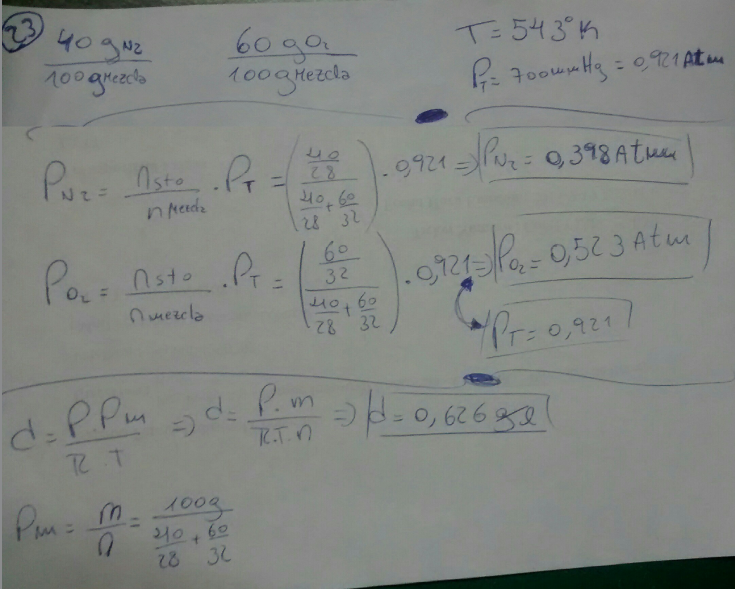 23
40 gN2 / 100gMezcla    60 gO2 / 100gMezcla    T = 543°K
PT = 700mmHg = 0,921Atm
PN2 = nsto / nMezcla . PT = ((40/28) / (40/28 + 60/32)) . 0,921 => PN2 = 0,398Atm
PO2 = nsto / nMezcla . PT = ((60/32) / (40/28 + 60/32)) . 0,921 => PO2 = 0,523Atm
PT = 0,921
d = P.Pm / R.T => d = P.m / R.T.n => d = 0,626
Pm = m / n = 100g / (40/28 + 60/32)